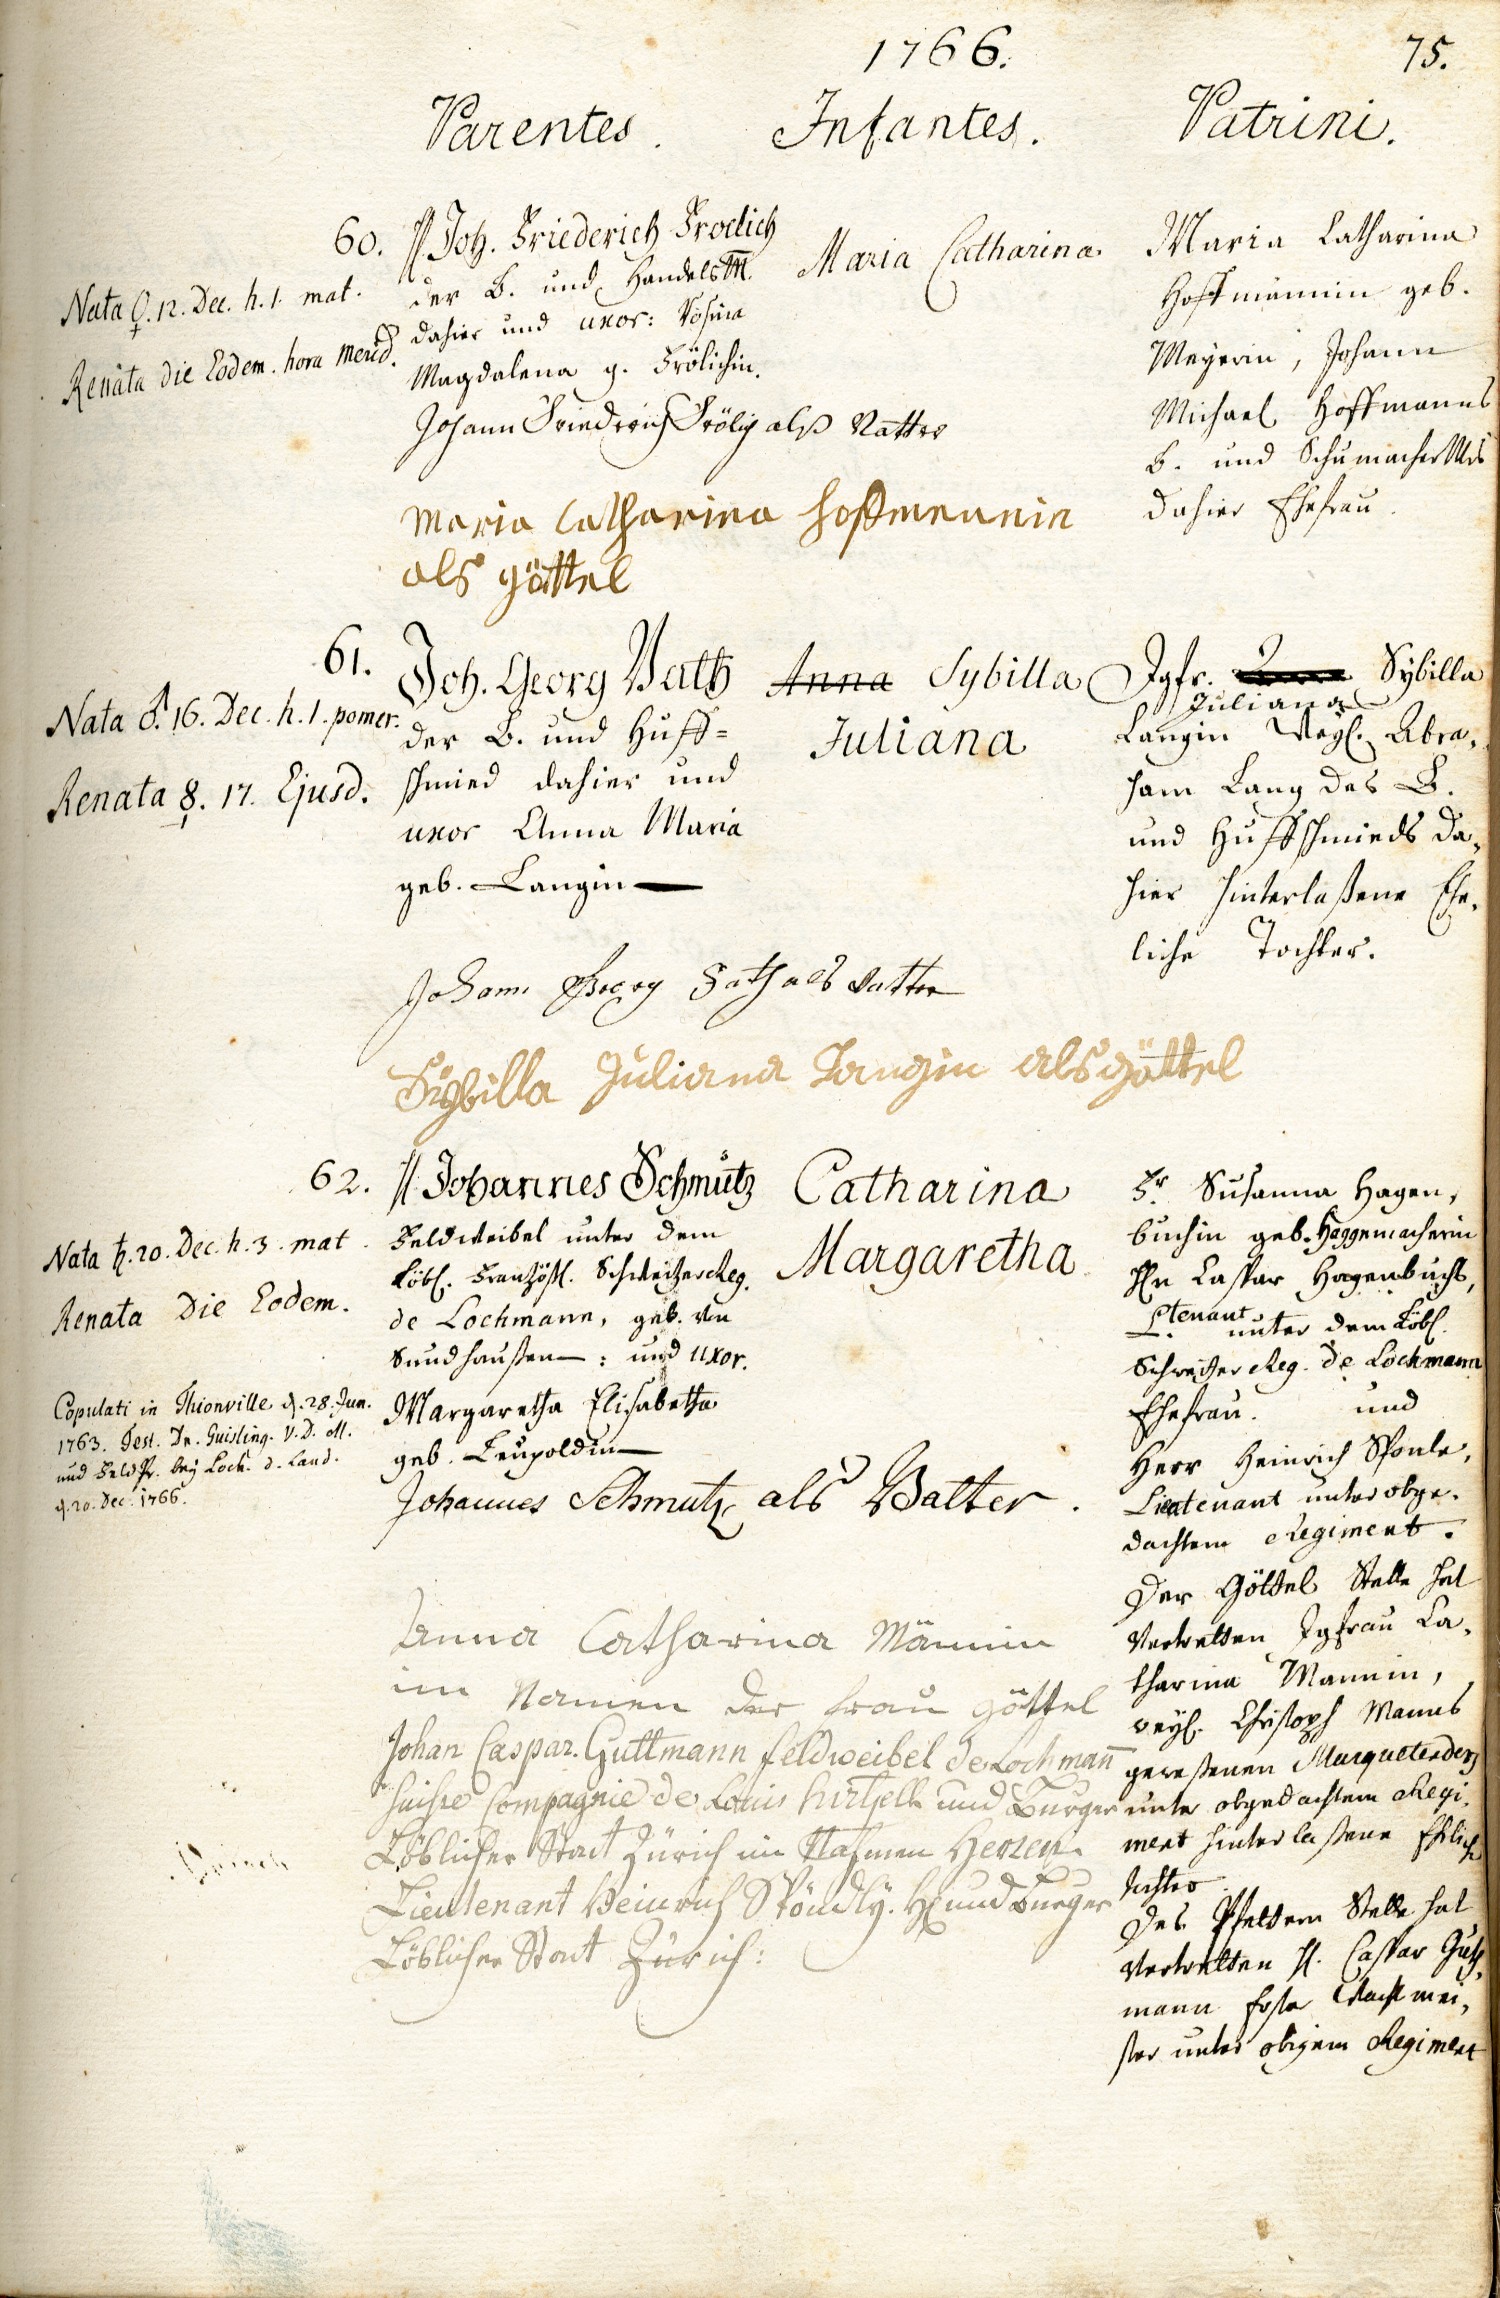 1766.
75.
Parentes.
Infantes.
Patrini.
60.
Nata ♀. 12. Dec. h. 1. mat.
Renata die Eodem. hora merid.
Joh. Friederich Froelich
der B. und Handelsm.
dahier und uxor:
Magdalena g. Frölichin.
Johann Friedrich Frölig alß Vatter
Maria Catharina hoffmennin
als göttel
Maria Catharina.
Maria Catharina
Hoffmännin geb.
Meyerin, Johann
Michael Hoffmanns
B. und Schumacher Mrs
dahier Ehefrau.
61.
Nata ♂. 16. Dec. h. 1. pomer.
Renata ☿. 17. Ejusd.
Joh. Georg Vath
der B. und Huff=
schmied dahier und
uxor Anna Maria
geb. Langin
Johann Georg Fath als Vatter
Sybilla Juliana Langin als göttel
Anna Sybilla
Juliana
Jgfr. Sybilla
Juliana
Langin Weyl. Abra,
ham Lang des B.
und Huffschmieds da,
hier hinterlaßene Ehe,
liche Tochter.
62.
Nata ♄. 20. Dec. h. 3. mat.
Renata Die Eodem.
Copulati in Thionville d. 28. Jun.
1763. Test. Dn. Guisling. V. D. M.
und Feldpr. bey Loch. d. Land.
d. 20. Dec. 1766.
Johannes Schmutz
Feldweibel unter dem
Löbl. Frantzöß. Schweitzer Reg.
de Lochmann, geb. von
Sundhaußen: und uxor.
Margaretha Elisabetha
geb. Leupoldin
Johannes Schmutz als Vatter.
Anna Catharina Männin
im Namen der frau göttel
Johan Caspar. Guttmann feldweibel de Lochmann
suisse Compagnie de Louis hirtzell und Burger
Löblicher Statt Zürich im Nahmen Herren
Lieutenant Heinrich Spöndly. und Burger
Löblicher Statt Zürich:
Catharina
Margaretha
Fr. Susanna Hagen,
buchin geb. Haggenmacherin
Hn Caspar Hagenbuchs,
Ltenant unter dem Löbl.
Schweitzer Reg. de Lochmann
Ehefrau. und
Herr Heinrich Sponle,
Lieutenant unter obge,
dachtem Regiment.
Der Göttel Stelle hat
Vertretten Jgfrau Ca,
tharina Mannin,
weyl. Christoph Manns
geweßenen Marquetenders
unter obgedachtem Regi,
ment hinterlaßene Ehliche
Tochter.
Des Pfettern Stelle hat
Vertretten H. Caspar Gutt,
mann Erster Wachtmei,
ster unter obigem Regiment